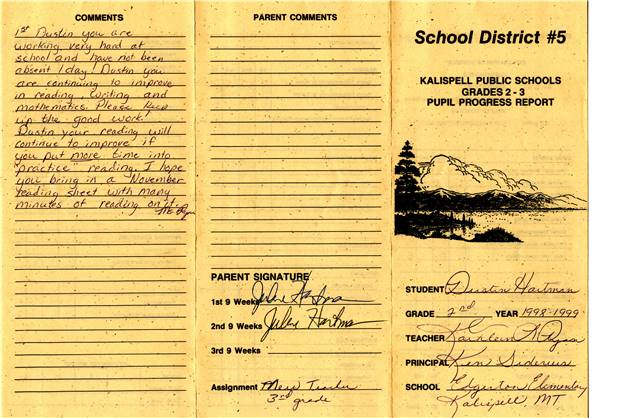 COMMENTS
1st Dustin you are
working very hard at
school and have not been
absent 1 day! Dustin you
are continuing to improve
in reading, writing and
mathematics. Please keep
up the good work!
Dustin your reading will
continue to improve if
you put more time into
"practice" reading. I hope
you bring in a November
reading sheet with many
minutes of reading on it.
PARENT COMMENTS
PARENT SIGNATURE
1st 9 Weeks Julie Hartman
2nd 9 Weeks Julie Hartman
3rd 9 Weeks
Assignment Meyer Teacher
3rd grade
School District #5
KALISPELL PUBLIC SCHOOLS
GRADES 2 - 3
PUPIL PROGRESS REPORT
STUDENT Dustin Hartman
GRADE 2nd YEAR 1998-1999
TEACHER Kathleen
PRINCIPAL Ken Siderius
SCHOOL Edgerton Elementary
Kalispell MT